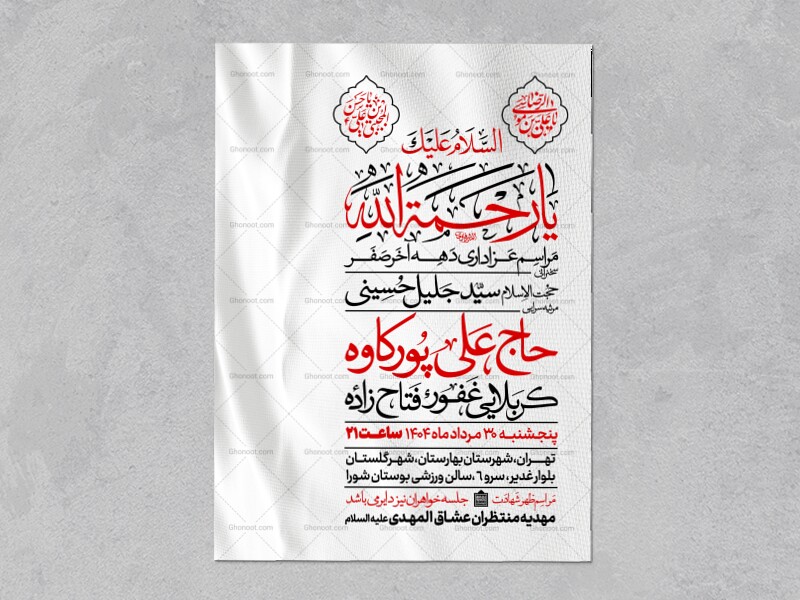 یا علی بن موسی الرضا
یا حسن بن علی المجتبی
السَّلامُ عَلَیْکَ
یا رَحمَةَ اللّه
مَراسِم عَزاداری دَهِه آخَر صَفَر
سخنرانی
حجت الاسلام سیّد جَلیل حُسِینی
مرثیه سرایی
حاج عَلی پُورکاوِه
کَربَلایی غَفور فَتاح زادِه
پنجشنبه ۳۰ مرداد ماه ۱۴۰۴ ساعت ۲۱
تهران، شهرستان بهارستان، شهر گلستان
بلوار غدیر، سرو ۶، سالن ورزشی بوستان شورا
مراسم ظهر شهادت جلسه خواهران نیز دایر می باشد
مهدیه منتظران عشاق المهدی علیه السلام
Ghonoot.com